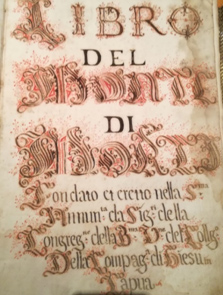 LIBRO
DEL
MONTE
DI
MORTI
Fondato et eretto nella S.ma
Annun.ta da Sig.ri della
Congreg.ne della B.ma V.ne del Colleg.
Della Compag. di Giesu in
Capua